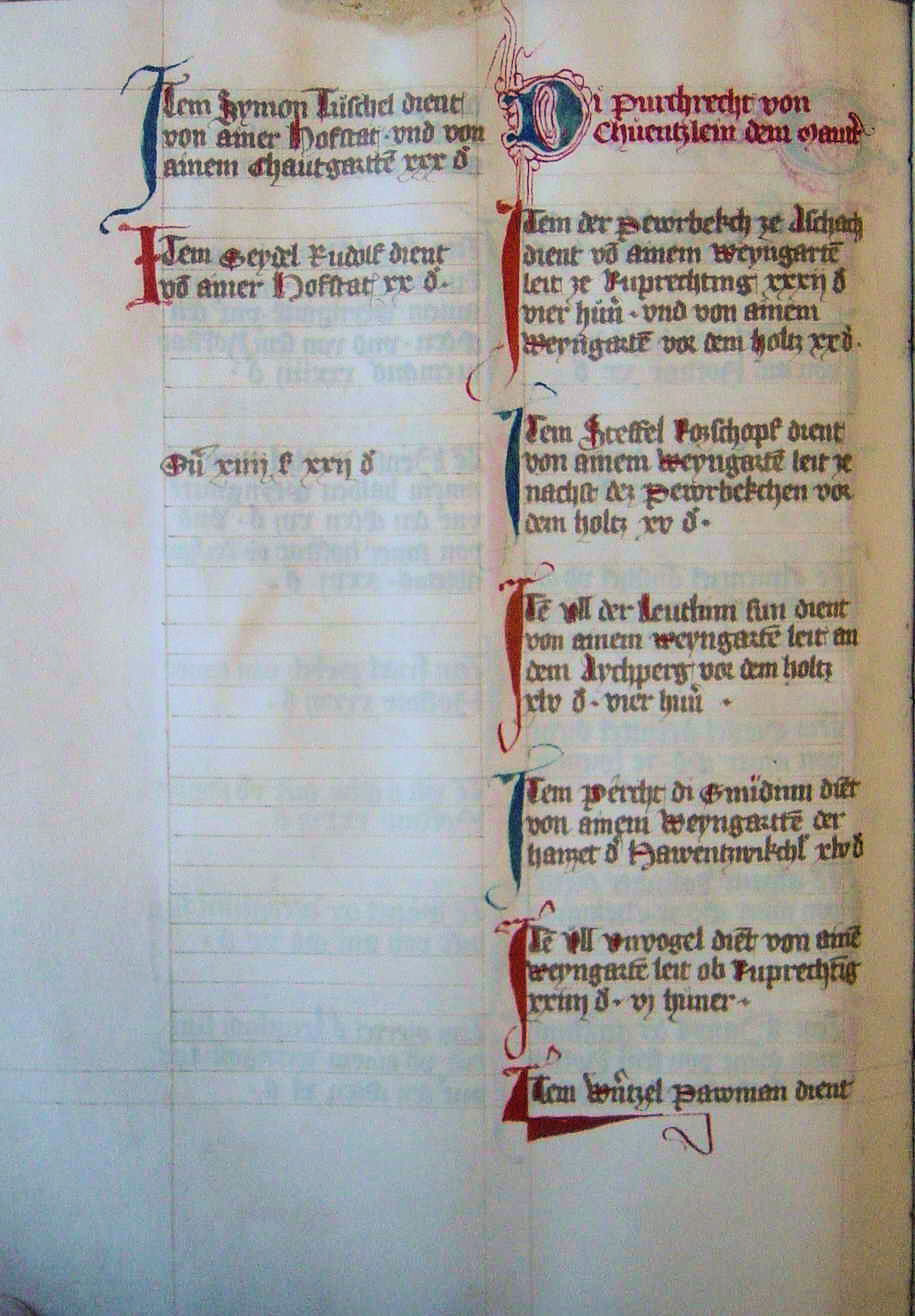 Item Symon Tüschel dient
von ainer Hofstat · vnd von
ainem Chrautgartē xxx đ
Item Seydel Rudolf dient
vō ainer Hofstat xx đ ·
Sū xiiij ł xxij đ
Di Purchrecht von
Chuentzlein dem Mautt̄
Item der Pewrbekch ze Aschach
dient vō ainem Weyngartē
leit ze Ruprechting xxxij đ
vier hün̄ · vnd von ainem
Weyngartē vor dem holtz xx đ ·
Item Steffel Rorschopf dient
von ainem Weyngartē leit ze
nachst der Pewrbekchen vor
dem holtz xv đ ·
Itē Vll der Leuthnn sun dient
von ainem weyngartē leit an
dem Aychperg vor dem holtz
xlv đ · vier hün̄ ·
Item Percht di Smidinn diēt
von ainem Weyngartē der
haizzet đ Hawentzwikchl xlv đ
Itē Vll Vnvogel diēt von ainē
weyngartē leit ob Ruprechtīg
xxiiij đ · vj hüner ·
Item Würtzel Pawman dient